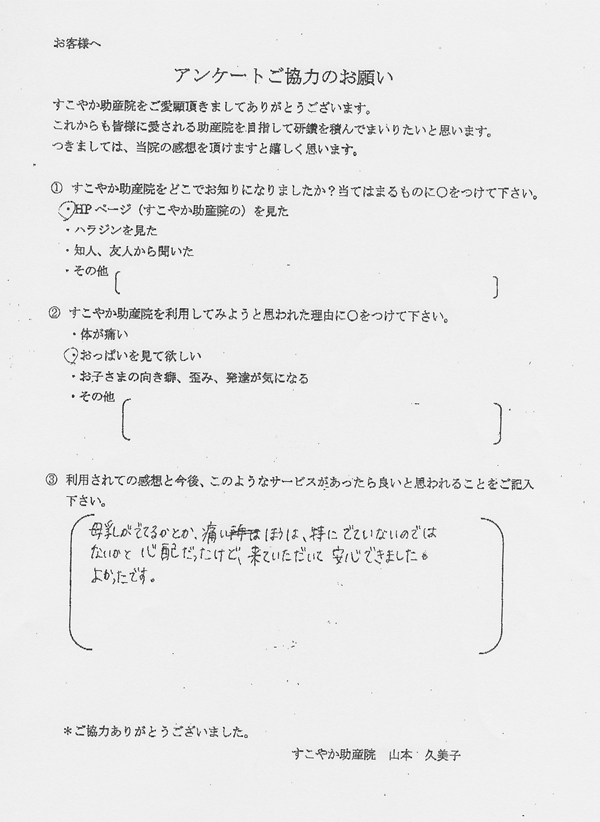 お客様へ
アンケートご協力のお願い
すこやか助産院をご愛願頂きましてありがとうございます。
これからも皆様に愛される助産院を目指して研鑽を積んでまいりたいと思います。
つきましては、当院の感想を頂けますと嬉しく思います。
① すこやか助産院をどこでお知りになりましたか？当てはまるものに〇をつけて下さい。
・HPページ（すこやか助産院の）を見た
・ハラジンを見た
・知人、友人から聞いた
・その他
② すこやか助産院を利用してみようと思われた理由に〇をつけて下さい。
・体が痛い
・おっぱいを見て欲しい
・お子さまの向き癖、歪み、発達が気になる
・その他
③ 利用されての感想と今後、このようなサービスがあったら良いと思われることをご記入
下さい。
母乳がでてるかとか、痛いほうは、特にでていないのでは
ないかと心配だったけど、来ていただいて安心できました。
よかったです。
＊ご協力ありがとうございました。
すこやか助産院 山本 久美子